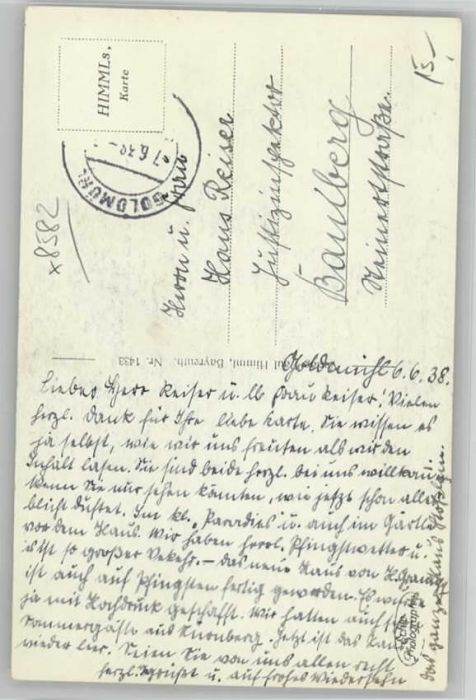 HIMMLs,
Karte
GOLDMÜHL
7.6.38
x8582
15.-
Herrn u. Frau
Hans Reiser
Justizinspektor
Bamberg
Steinertstraße.
Himml, Bayreuth. Nr. 1433
Goldmühl 6.6.38.
Lieber Herr Reiser u. lb Frau Reiser. Vielen
herzl. Dank für Ihre liebe Karte. Sie wissen es
ja selbst, wie wir uns freuten als wir den
Inhalt lasen. Sie sind beide herzl. bei uns willkom.
Wenn Sie nur sehen könnten, wie jetzt schon alles
blüht duftet. Ein kl. Paradies u. auch im Gärtle
vor dem Haus. Wir haben herrl. Pfingstwetter u.
es ist so großer Verkehr. – das neue Haus von
ist auch auf Pfingsten fertig geworden. Es wurde
ja mit Hochdruck geschafft. Wir hatten auch
Sommergäste aus Nürnberg. Jetzt ist das
wieder leer. Seien Sie von uns allen recht
herzl. gegrüßt u. auf frohes Wiedersehn
das ganze Haus
Echte
Photographie